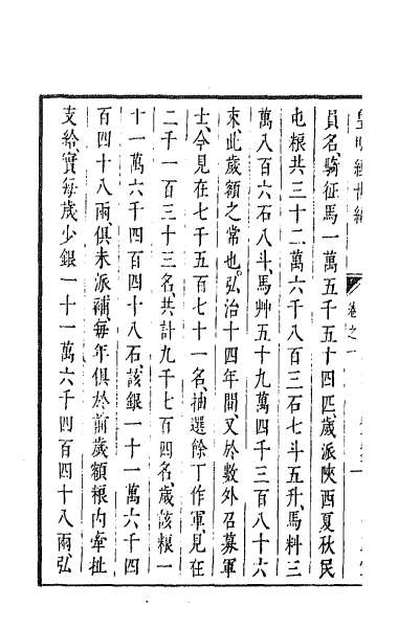 皇明經世編
卷之一
員名、騎征馬一萬五千五十四匹、歲派陝西夏秋民
屯粮共三十二萬六千八百三石七斗五升、馬料三
萬八百六石八斗、馬艸五十九萬四千三百八十六
束、此歲額之常也。弘治十四年間、又於數外召募軍
士、今見在七千五百七十一名、抽選餘丁作軍、見在
二千一百三十三名、共計九千七百四名、歲該粮一
十一萬六千四百四十八石、該銀一十一萬六千四
百四十八兩、俱未派補、每年俱於前歲額粮內牽扯
支給、實每歲少銀一十一萬六千四百四十八兩、弘